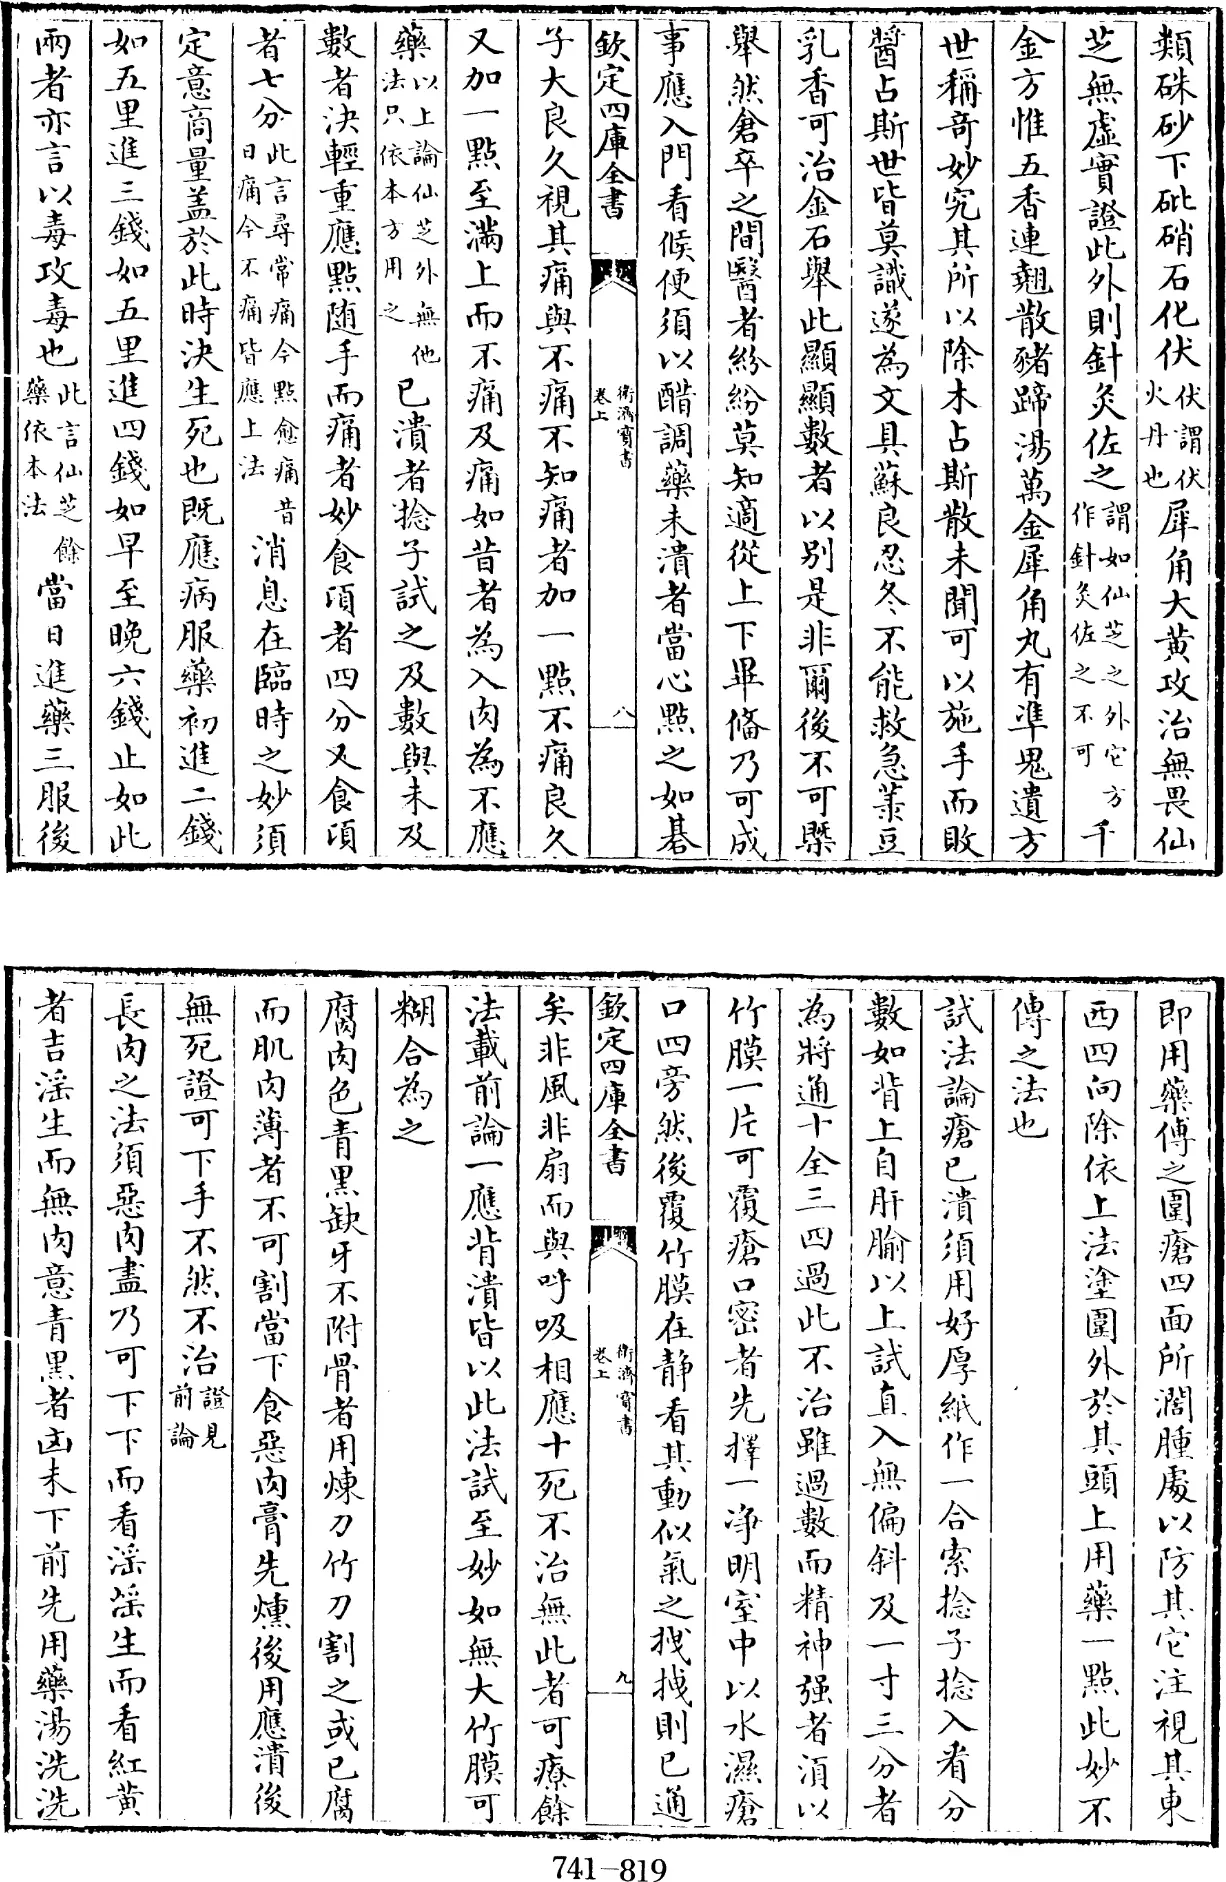 類硃砂下砒硝石化伏伏謂伏火丹也犀角大黃攻治無畏仙
芝無虛實證此外則針灸佐之謂如仙芝之外它方作針灸佐之不可千
金方惟五香連翹散豬蹄湯萬金犀角丸有準鬼遺方
世稱奇妙究其所以除木占斯散未聞可以施手而敗
醬占斯世皆莫識遂為文具蘇良忍冬不能救急菉豆
乳香可治金石舉此顯顯數者以别是非爾後不可槩
舉然倉卒之間醫者紛紛莫知適從上下畢脩乃可成
事應入門看候便須以醋調藥未潰者當心點之如碁
欽定四庫全書
衛濟寶書
卷上
八
子大良久視其痛與不痛不知痛者加一點不痛良久
又加一點至滿上而不痛及痛如昔者為入肉為不應
藥以上論仙芝外無他法只依本方用之已潰者捻子試之及數與未及
數者決輕重應點隨手而痛者妙食頃者四分又食頃
者七分此言尋常痛今點愈痛昔日痛今不痛皆應上法消息在臨時之妙須
定意商量盖於此時決生死也既應病服藥初進二錢
如五里進三錢如五里進四錢如早至晚六錢止如此
兩者亦言以毒攻毒也此言仙芝餘藥依本法當日進藥三服後
即用藥傅之圍瘡四面所濶腫處以防其它注視其東
西四向除依上法塗圍外於其頭上用藥一點此妙不
傳之法也
試法論瘡已潰須用好厚紙作一合索捻子捻入看分
數如背上自肝腧以上試直入無偏斜及一寸三分者
為將通十全三四過此不治雖過數而精神强者須以
竹膜一片可覆瘡口密者先擇一凈明室中以水濕瘡
口四旁然後覆竹膜在静看其動似氣之拽拽則已通
欽定四庫全書
衛濟寶書
卷上
九
矣非風非扇而與呼吸相應十死不治無此者可療餘
法載前論一應背潰皆以此法試至妙如無大竹膜可
糊合為之
腐肉色青黑缺牙不附骨者用煉刀竹刀割之或已腐
而肌肉薄者不可割當下食惡肉膏先燻後用應潰後
無死證可下手不然不治證見前論
長肉之法須惡肉盡乃可下下而看滛滛生而看紅黃
者吉滛生而無肉意青黑者凶未下前先用藥湯洗洗
741-819